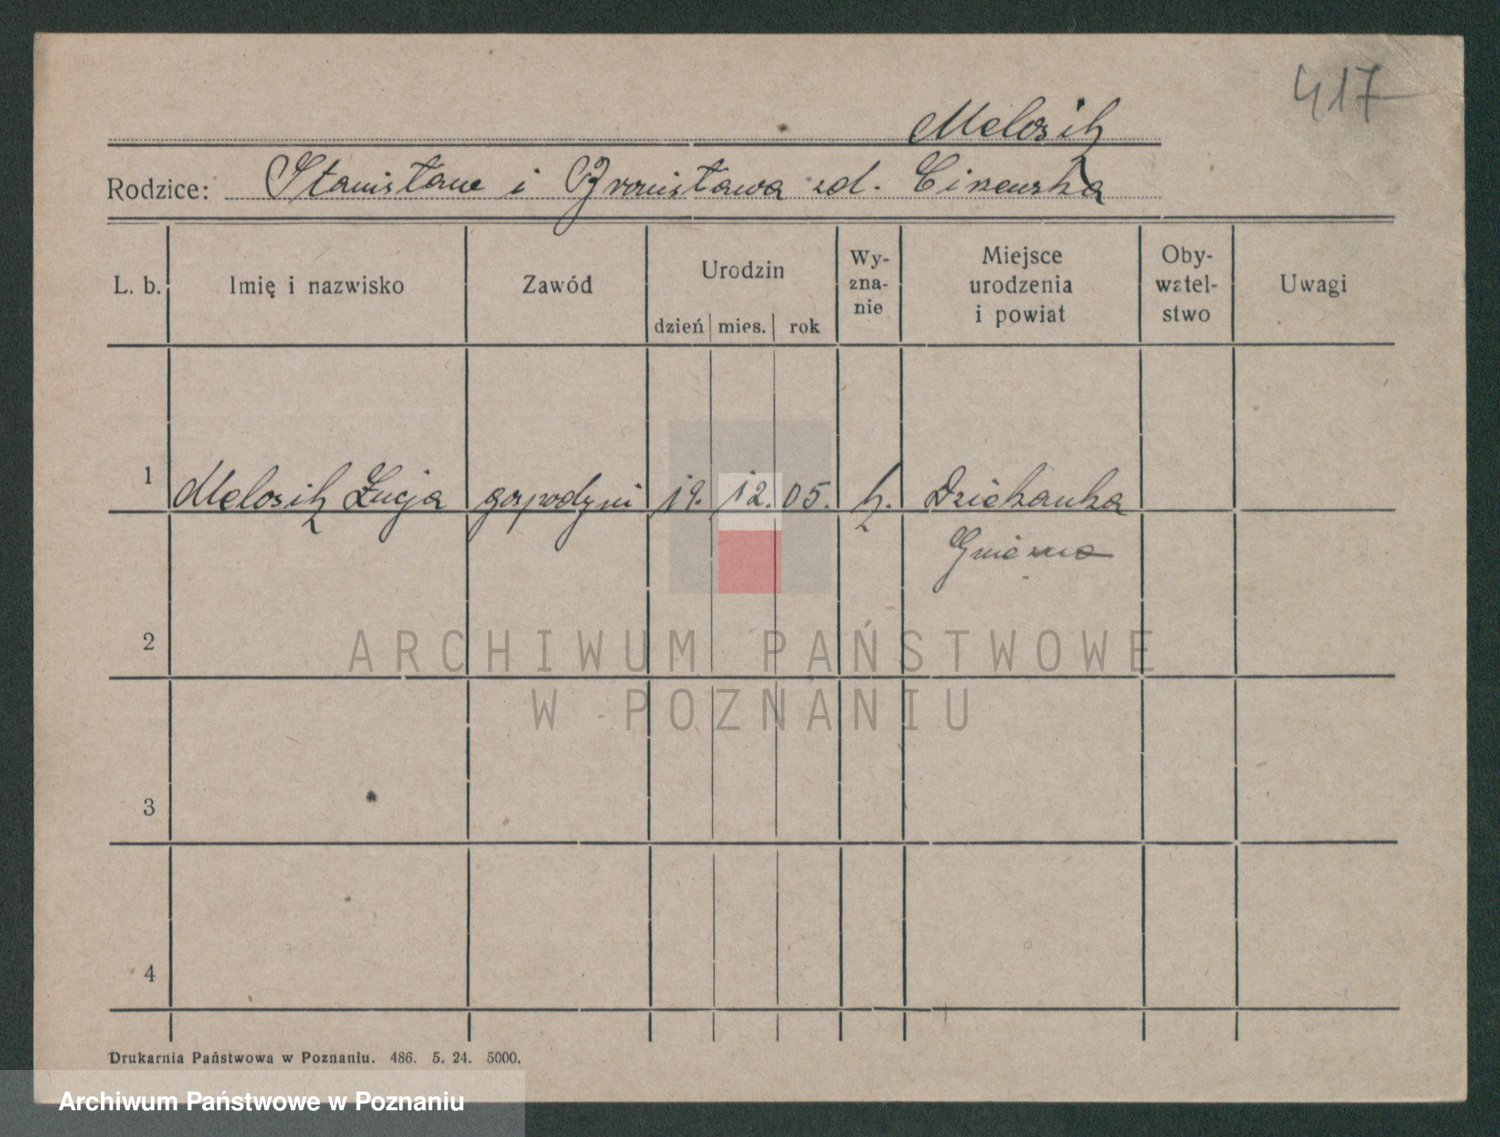 417
Melosik
Rodzice: Stanisław i Bronisława zd.
L. b. Imię i nazwisko Zawód Urodzin dzień mies. rok Wy-zna-nie Miejsce urodzenia i powiat Oby-watel-stwo Uwagi
1 Melosik Łucja gospodyni 19. 12. 05. k. Dziekanka
Gniezno
2
ARCHIWUM PAŃSTWOWE
W POZNANIU
3
4
Drukarnia Państwowa w Poznaniu. 486. 5. 24. 5000.
Archiwum Państwowe w Poznaniu